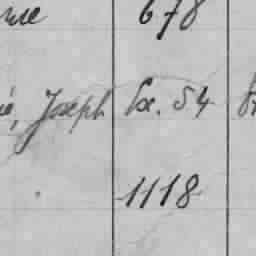 678
Joseph Ex. 54
1118